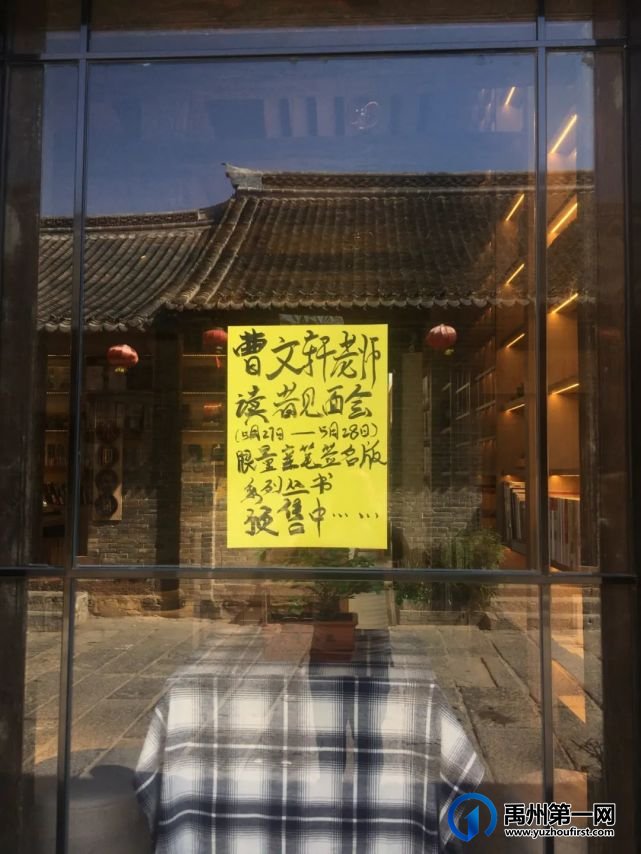 曹文轩老师
读者见面会
(5月27日——5月28日)
限量亲笔签名版
系列丛书
预售中……
禹州第一网
www.yuzhoufirst.com